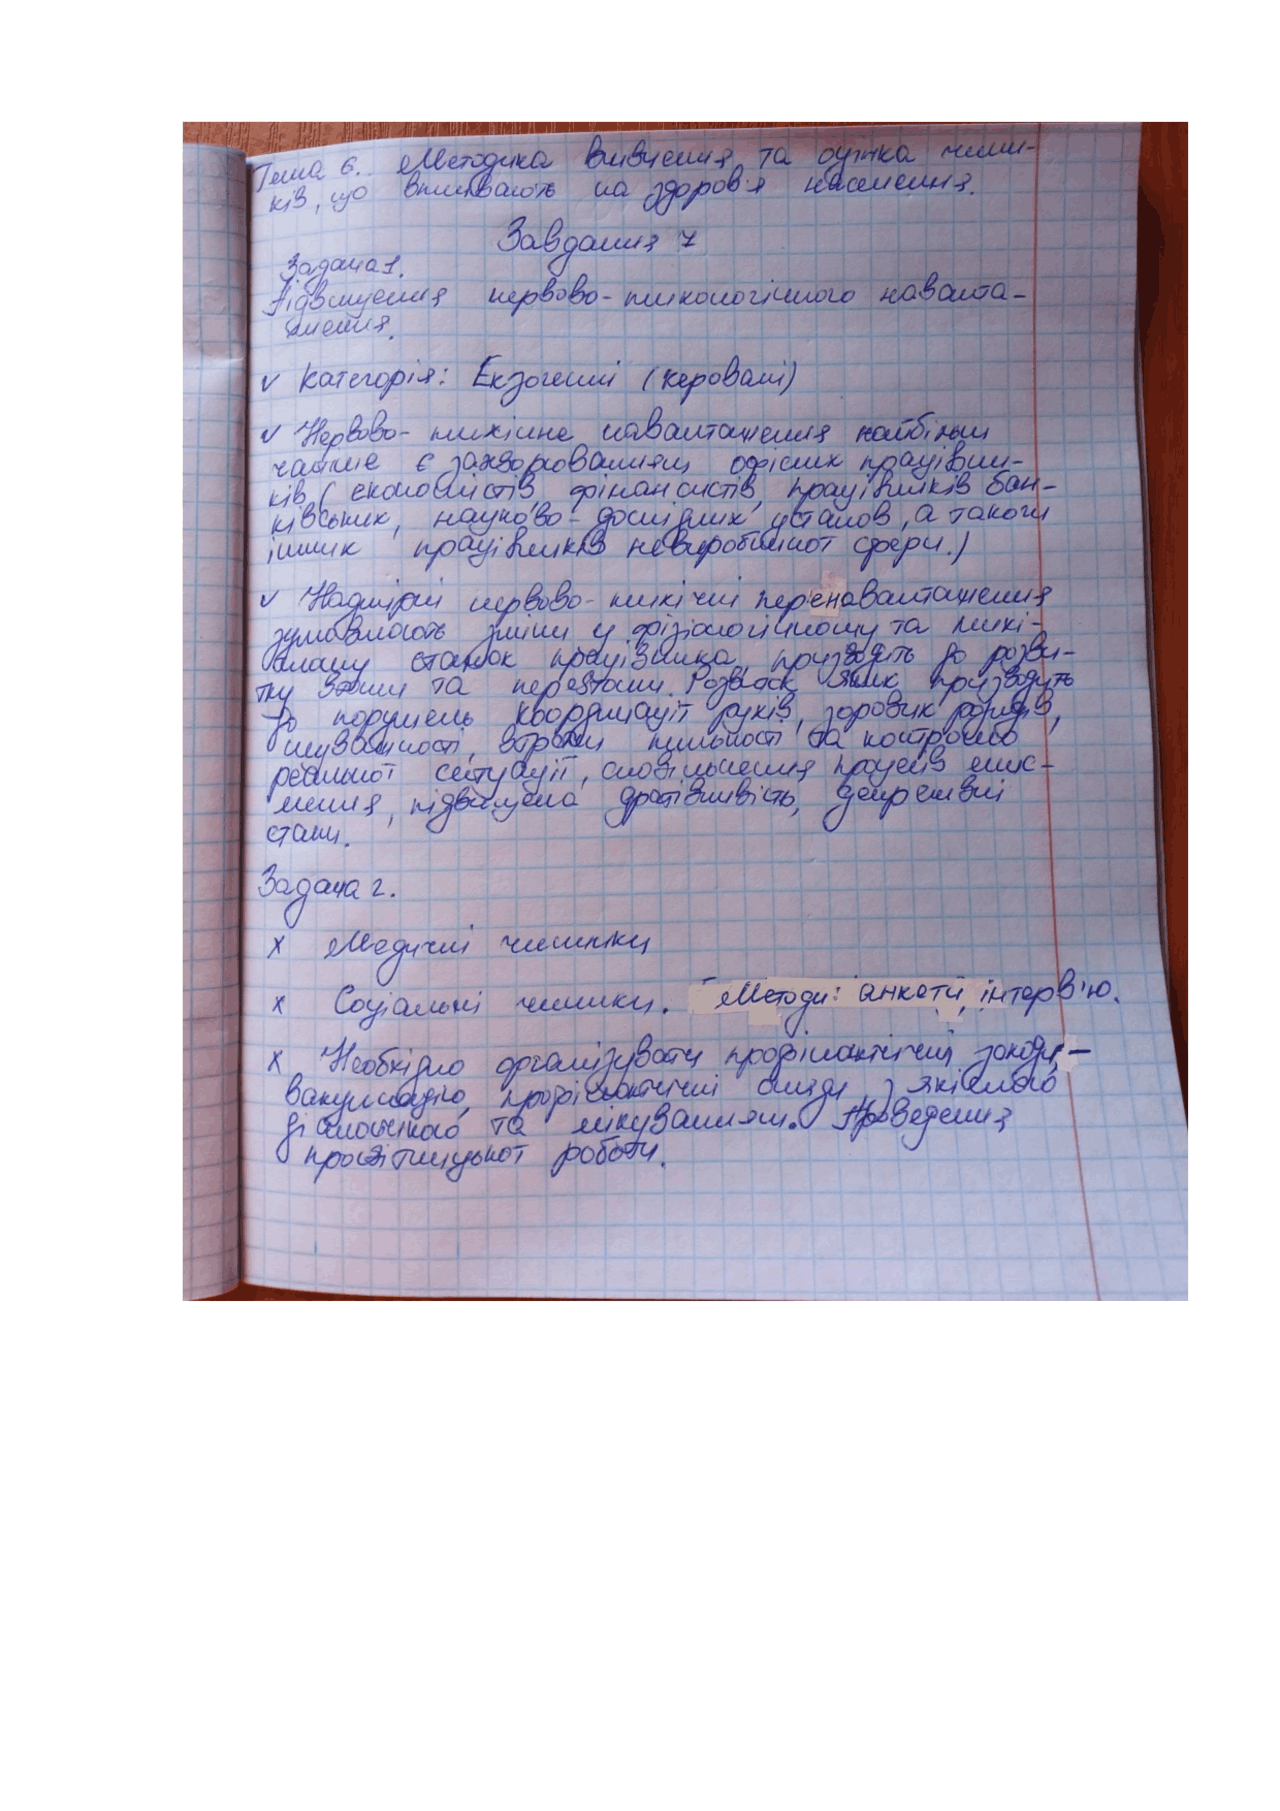 Тема 6. Методика вивчення та оцінка чинни-
ків, що впливають на здоров'я населення.
Завдання 7
Задача 1.
Підвищення нервово-психологічного наванта-
ження.
✓ Категорія: Екзогенні (керовані)
✓ Нервово-психічне навантаження найбільш
частіше є захворюванням офісних працівни-
ків (економістів, фінансистів, працівників бан-
ківських, науково-дослідних установ, а також
інших працівників невиробничої сфери.)
✓ Надмірні нервово-психічні перенавантаження
зумовлюють зміни у фізіологічному та психі-
чному станах працівника, призводять до розви-
тку втоми та перевтоми. Розвиток яких призводить
до порушень координації рухів, зорових розладів,
неуважності, втрати пильності та контролю
реальної ситуації, сповільнення процесів мис-
лення, підвищена дратівливість, депресивні
стани.
Задача 2.
х Медичні чинники
х Соціальні чинники. Методи: анкети, інтерв'ю.
х Необхідно організувати профілактичні заходи, –
вакцинацію, профілактичні огляди з якісною
діагностикою та лікуванням. Проведення
просвітницької роботи.